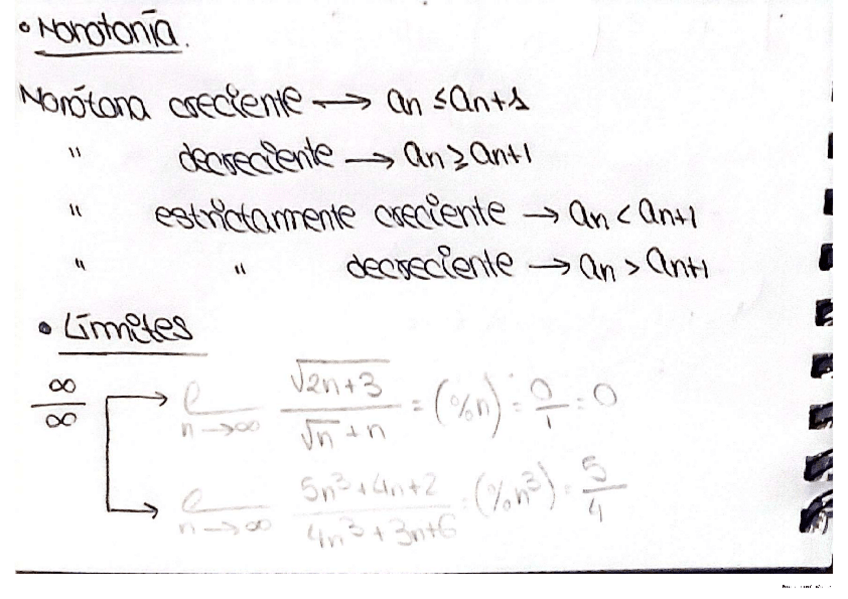 • Monotonía.
Monótona creciente → an ≤ an+1
" decreciente → an ≥ an+1
" estrictamente creciente → an < an+1
" " decreciente → an > an+1
• Límites
∞/∞ → l n→∞ √(2n+3) / (√n + n) = (%n) = 0/1 = 0
→ l n→∞ (5n³+4n+2) / (4n³+3n+6) = (%n³) = 5/4